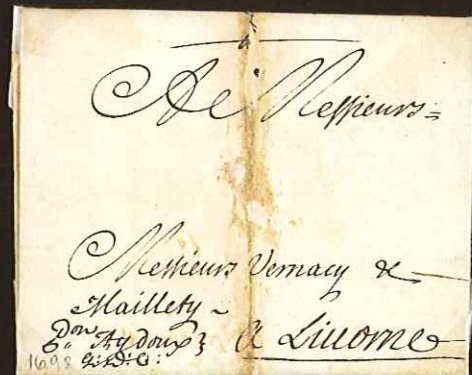 A Messieurs=
Messieurs Vernacy &
Maillety ~
Don Aydoux} A Liuorne
1698 Q. D. C: